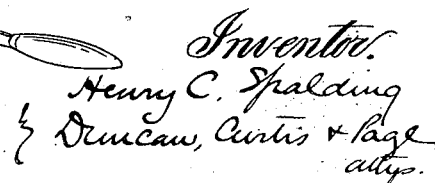 Inventor.
Henry C. Spalding
Duncan, Curtis & Page
attys.